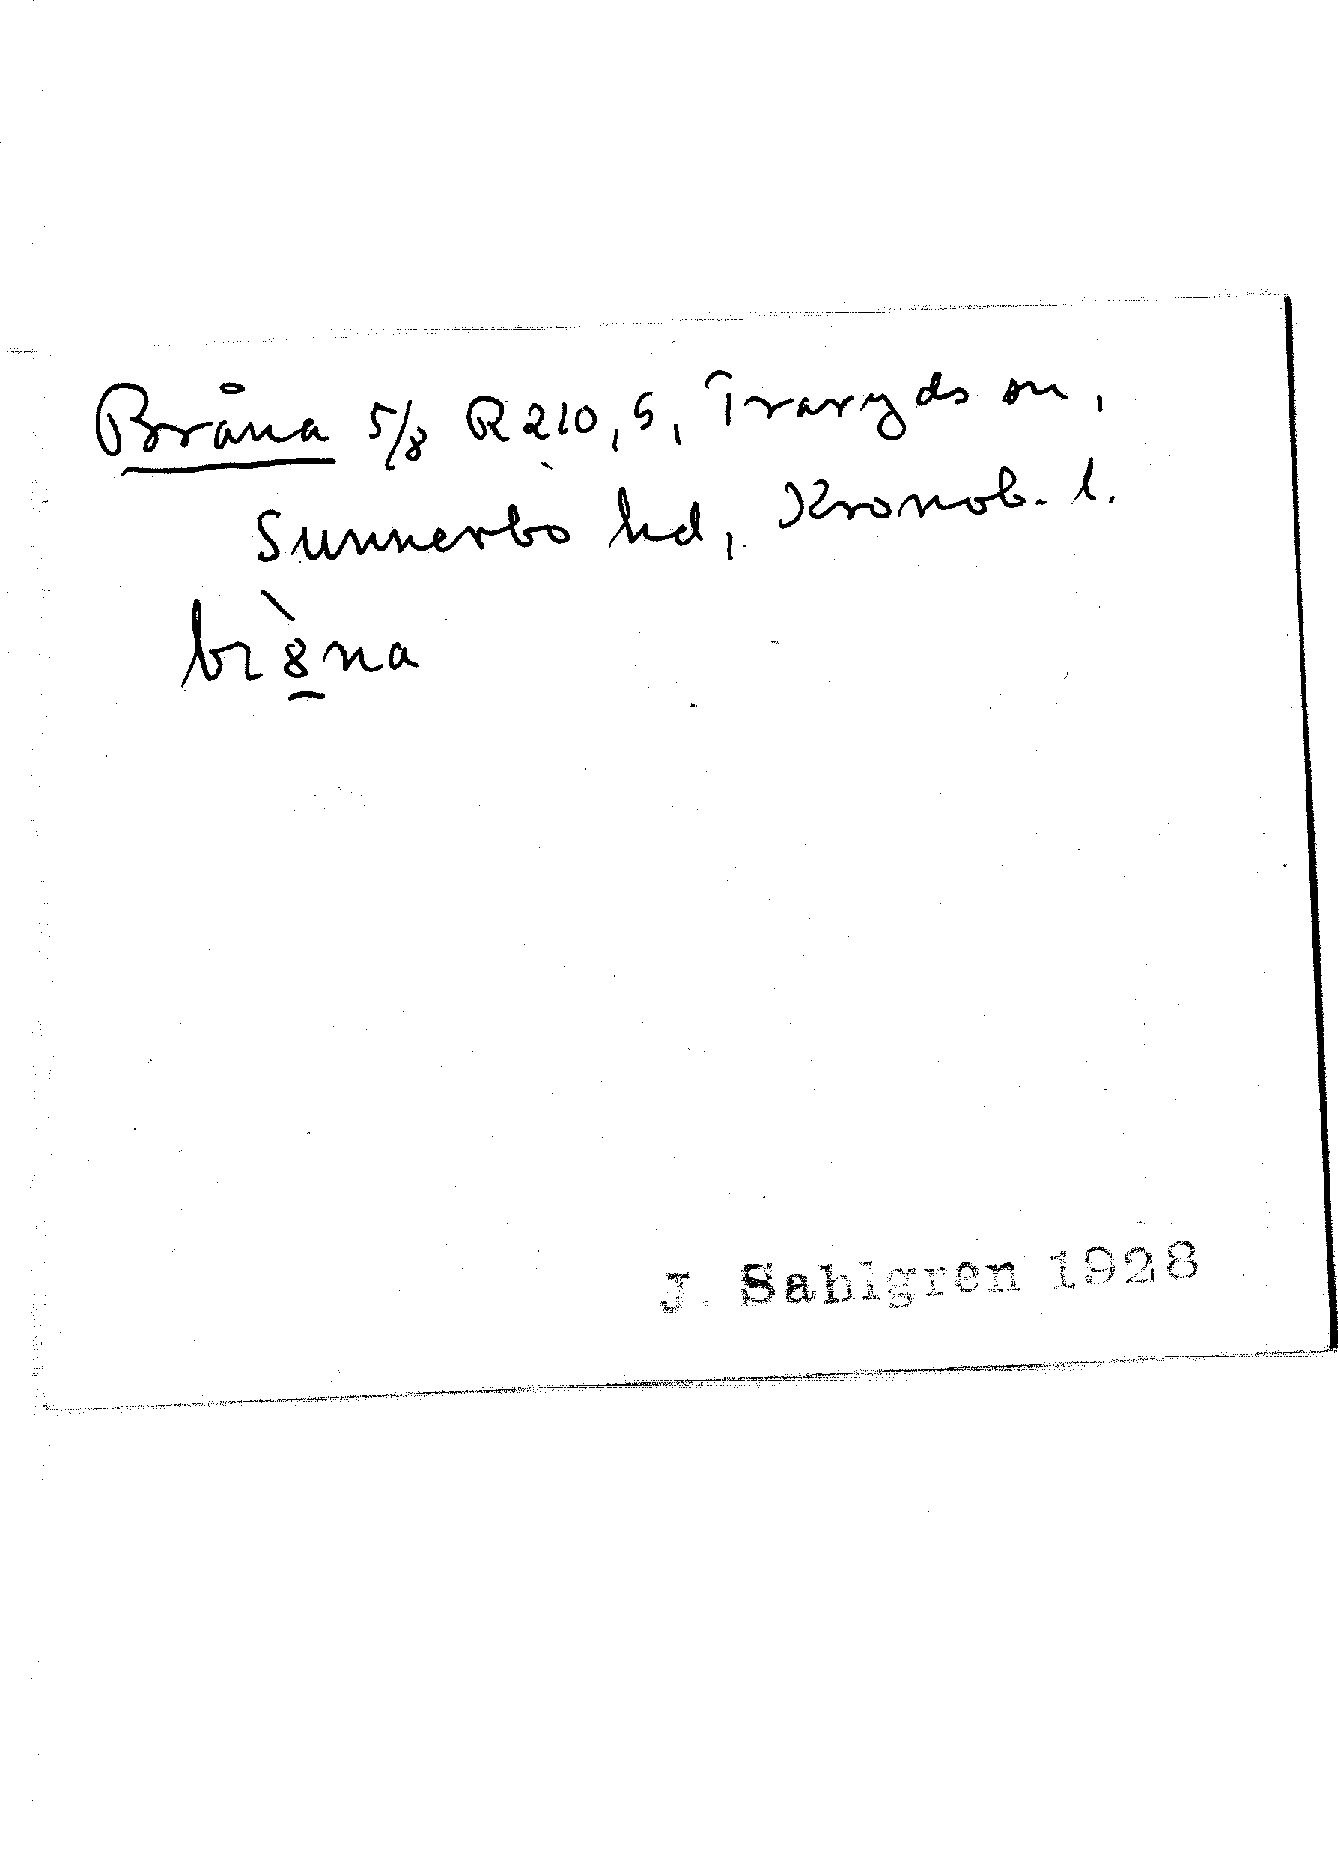 Bråna 5/8 R 210, S, Traryds sn,
Sunnerbo hd, Kronob. l.
br8̲̀na
J. Sahlgren 1928